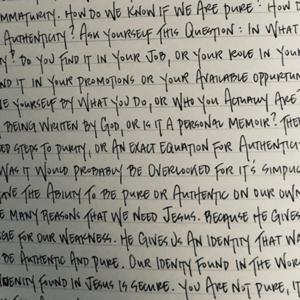 MMATURITY. HOW DO WE KNOW IF WE ARE PURE? HOW D
AUTHENTICITY? ASK YOURSELF THIS QUESTION: IN WHAT
Y? DO YOU FIND IT IN YOUR JOB, OR YOUR ROLE IN YOUR
ND IT IN YOUR PROMOTIONS OR YOUR AVAILABLE OPPORTUN
E YOURSELF BY WHAT YOU DO, OR WHO YOU ACTUALLY ARE?
BEING WRITTEN BY GOD, OR IS IT A PERSONAL MEMOIR? THE
ED STEPS TO PURITY, OR AN EXACT EQUATION FOR AUTHENTIC
WAS IT WOULD PROBABLY BE OVERLOOKED FOR IT'S SIMPLIC
AVE THE ABILITY TO BE PURE OR AUTHENTIC ON OUR OWN
E MANY REASONS THAT WE NEED JESUS. BECAUSE HE GIVES
FOR OUR WEAKNESS. HE GIVES US AN IDENTITY THAT WA
BE AUTHENTIC AND PURE. OUR IDENITY FOUND IN THE WOR
IDENITY FOUND IN JESUS IS SECURE. YOU ARE NOT PURE, IT